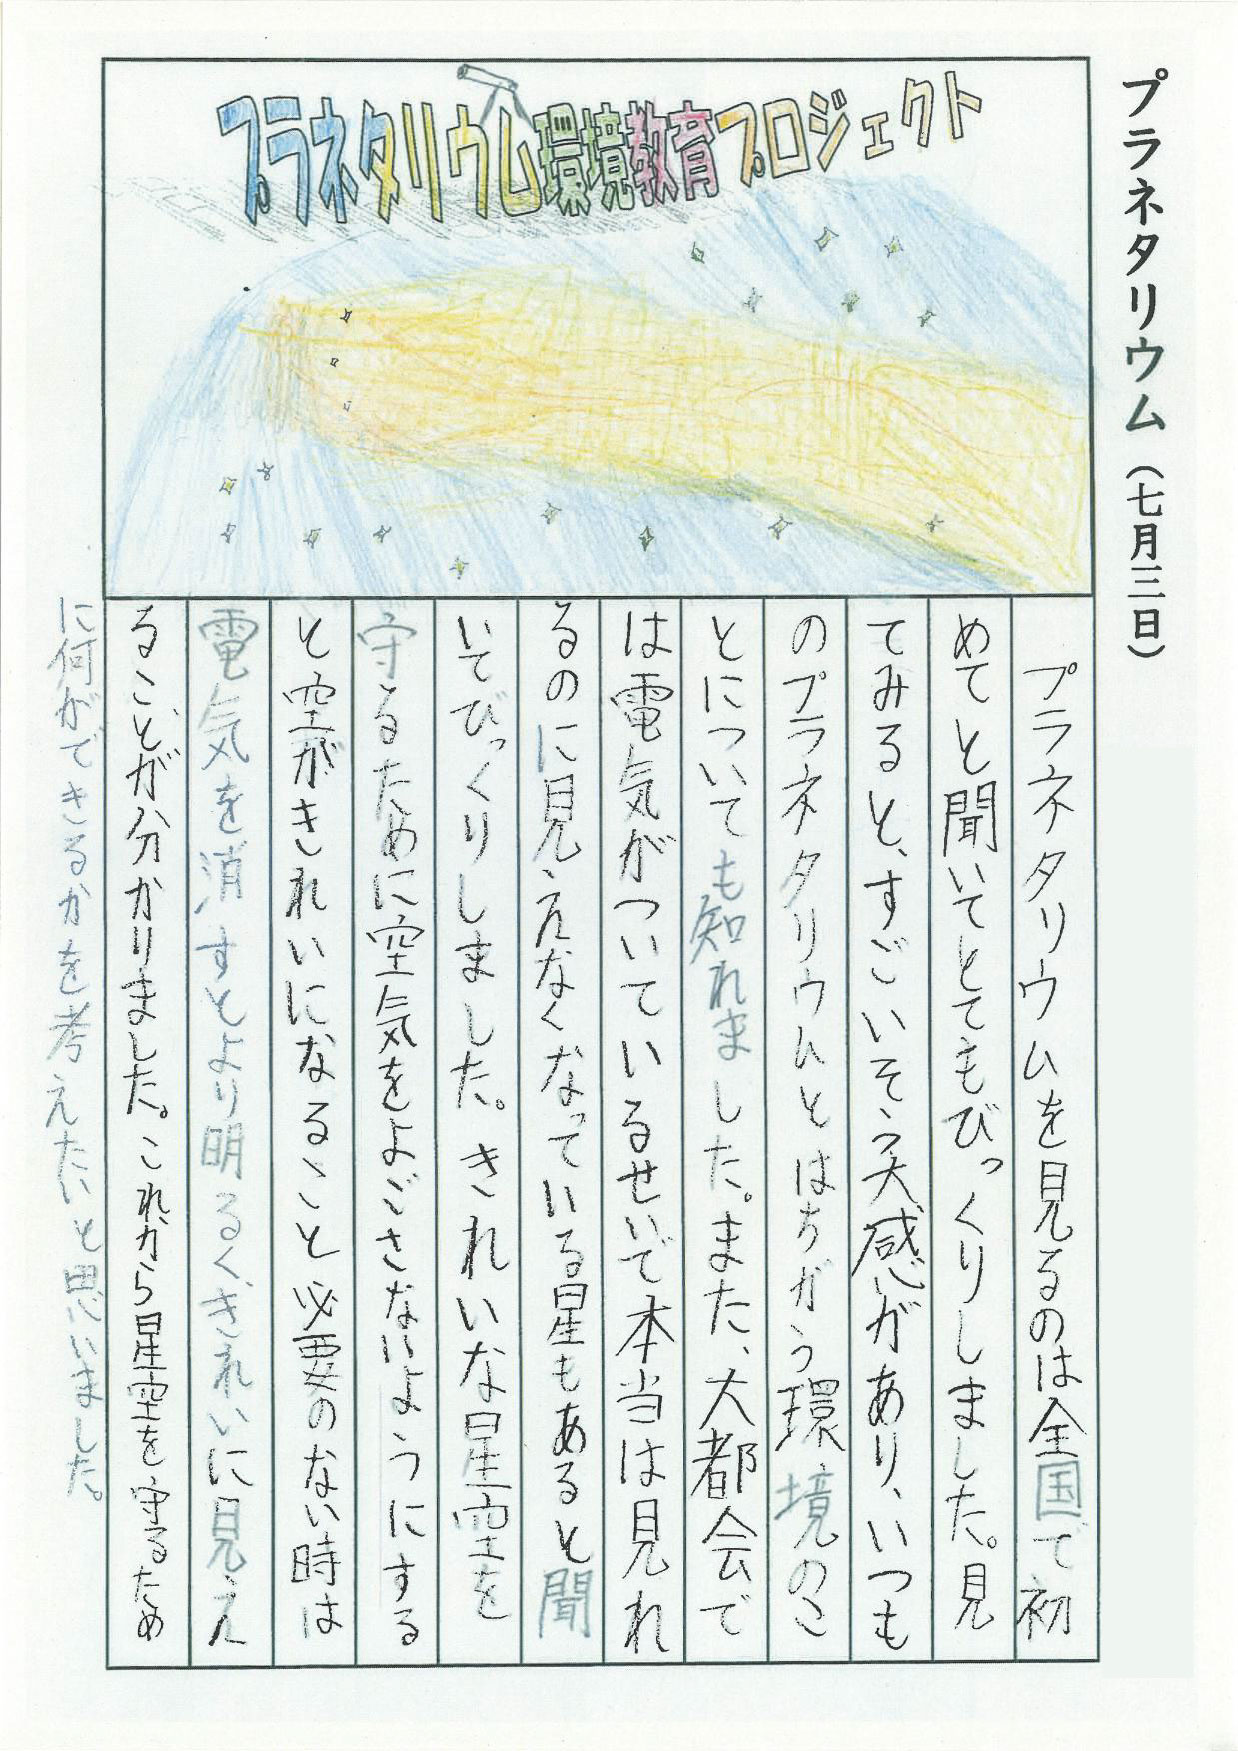 プラネタリウム(七月三日)
プラネタリウム環境教育プロジェクト
プラネタリウムを見るのは全国で初
めてと聞いてとてもびっくりしました。見
てみると、すごいそう大感があり、いつも
のプラネタリウムとはちがう環境のこ
とについても知れました。また、大都会で
は電気がついているせいで本当は見れ
るのに見えなくなっている星もあると聞
いてびっくりしました。きれいな星空を
守るために空気をよごさないようにする
と空がきれいになること必要のない時は
電気を消すとより明るく、きれいに見え
ることが分かりました。これから星空を守るため
に何ができるかを考えたいと思いました。